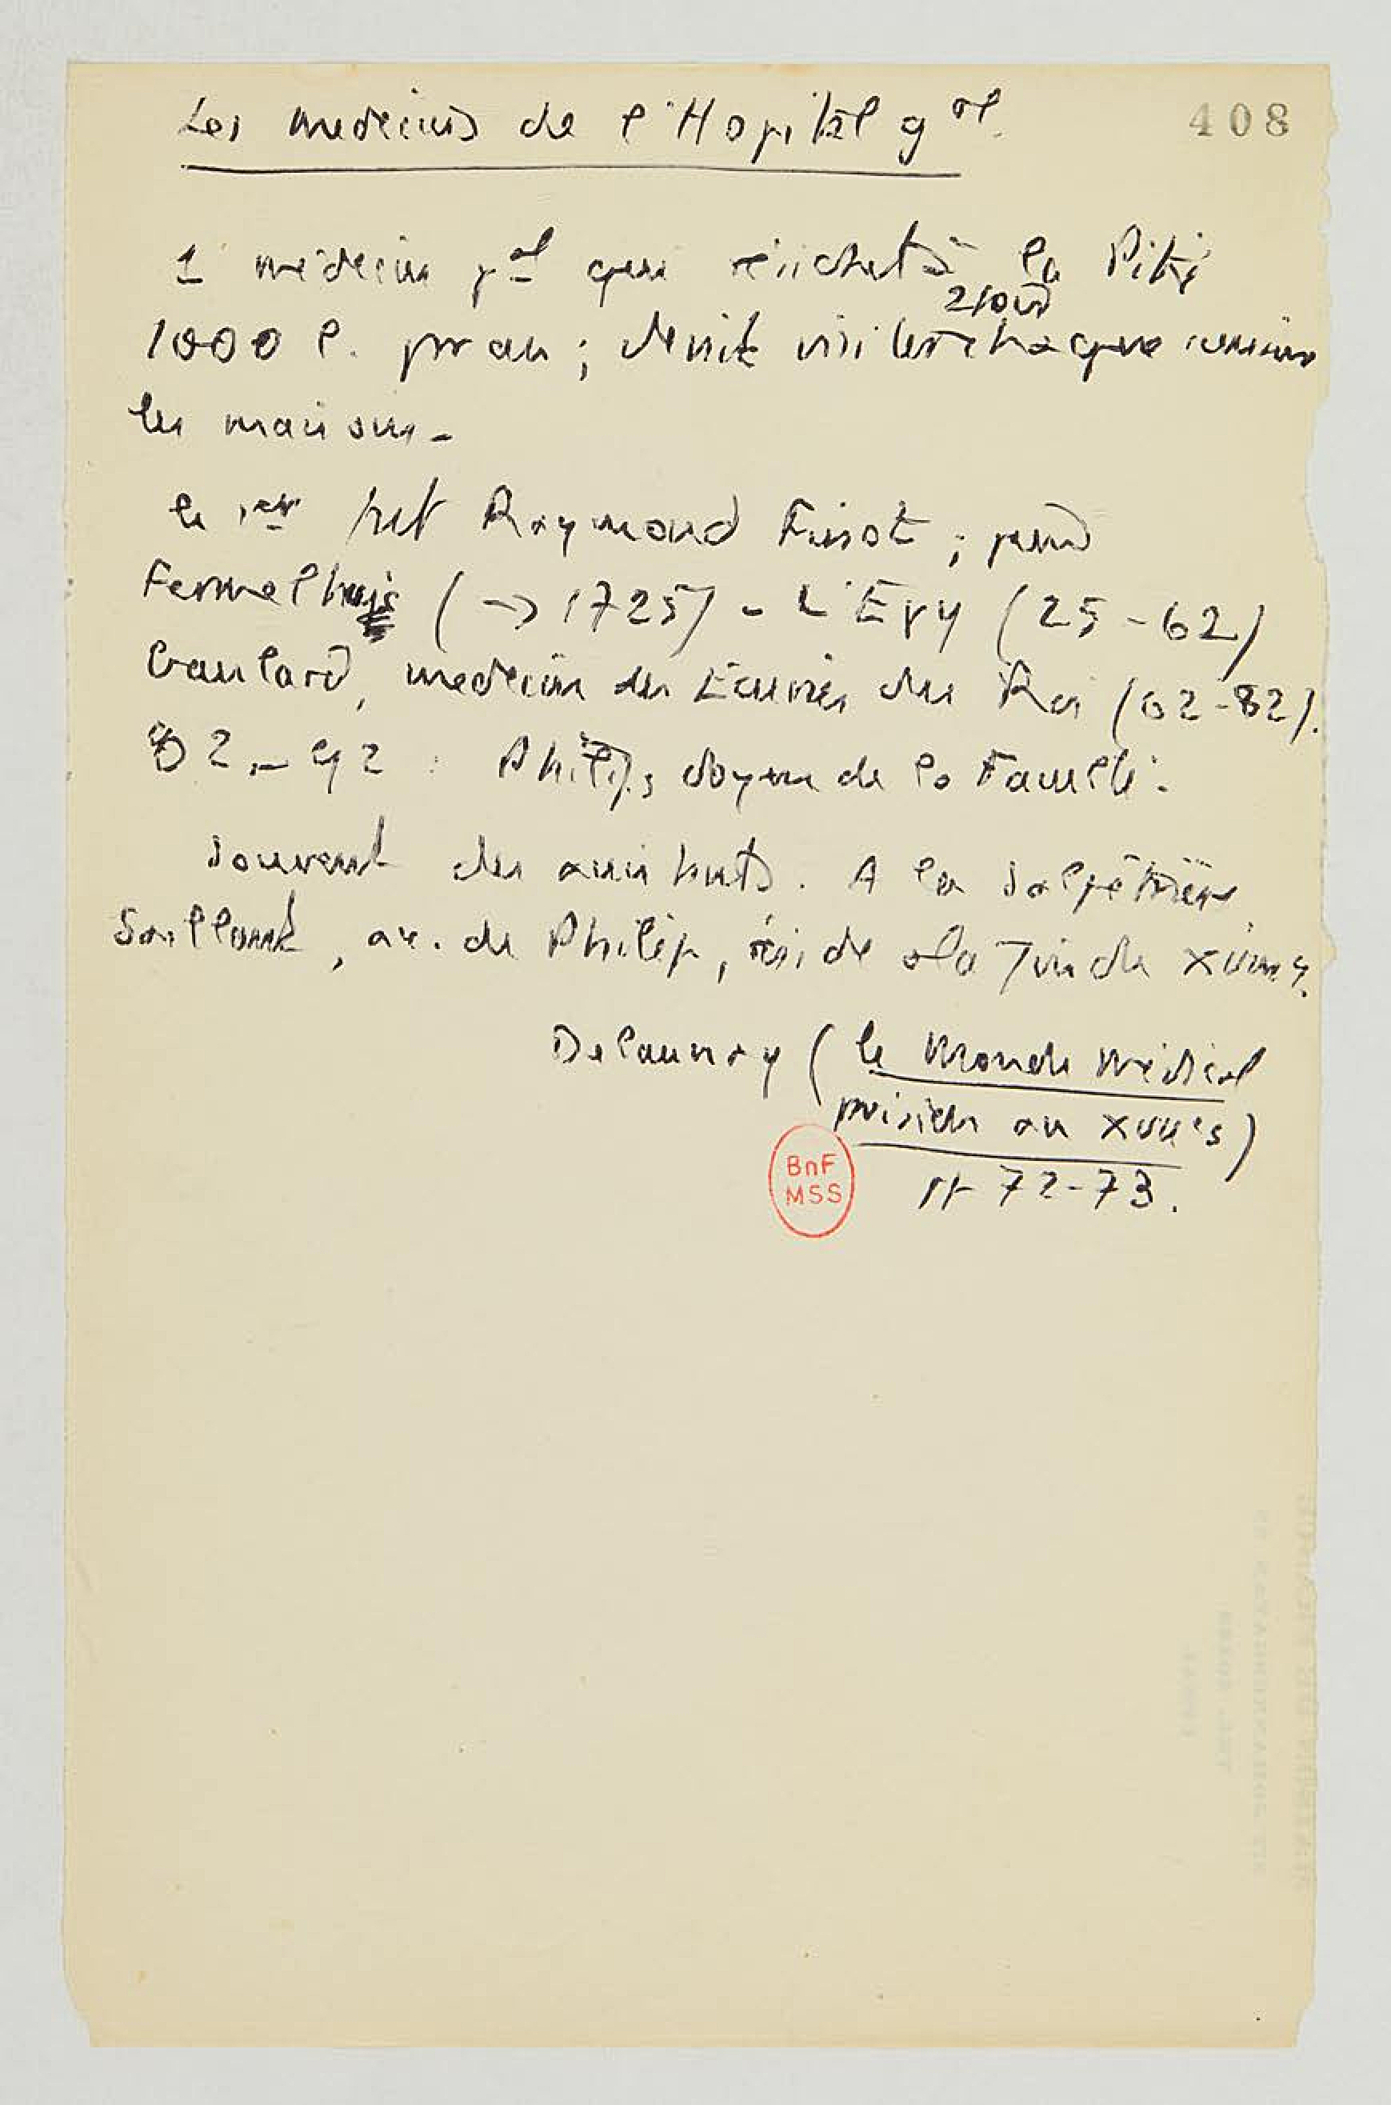 Les medecins de l'Hopital gal.
408
1 médecin pal qui résidait à la Pitié
2 fois
1000 l. par an ; devait visiter chaque semaine
les maisons.
Le 1er fut Raymond Finot ; puis
Fermelhuis (→ 1725) - L'Epy (25-62)
Gaulard, medecin des Ecuries du Roi (62-82).
82-92 : Philip, doyen de la Faculté.
Souvent des assistants. A la Salpêtrière,
Saillant, de Philip, réside à la fin du XVIIIe s.
Delaunay (le Monde médical
parisien au XVIIIe s)
pp 72-73.
BnF
MSS